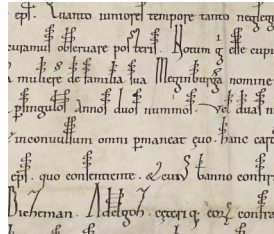 epī. Quanto iuniores tempore tanto negleg
cuiamus observare posteris. Notum g̃ esse cupi
a muliere de familia sua Meginburga nomine
p singulos annos duos nummos. Vel duas n
inconvulsum omni p̄maneat ęvo. hanc car
epī. quo consentiente. & eius banno confir
Bicheman. Adelgoh. ceteriq; eoꝝ confra